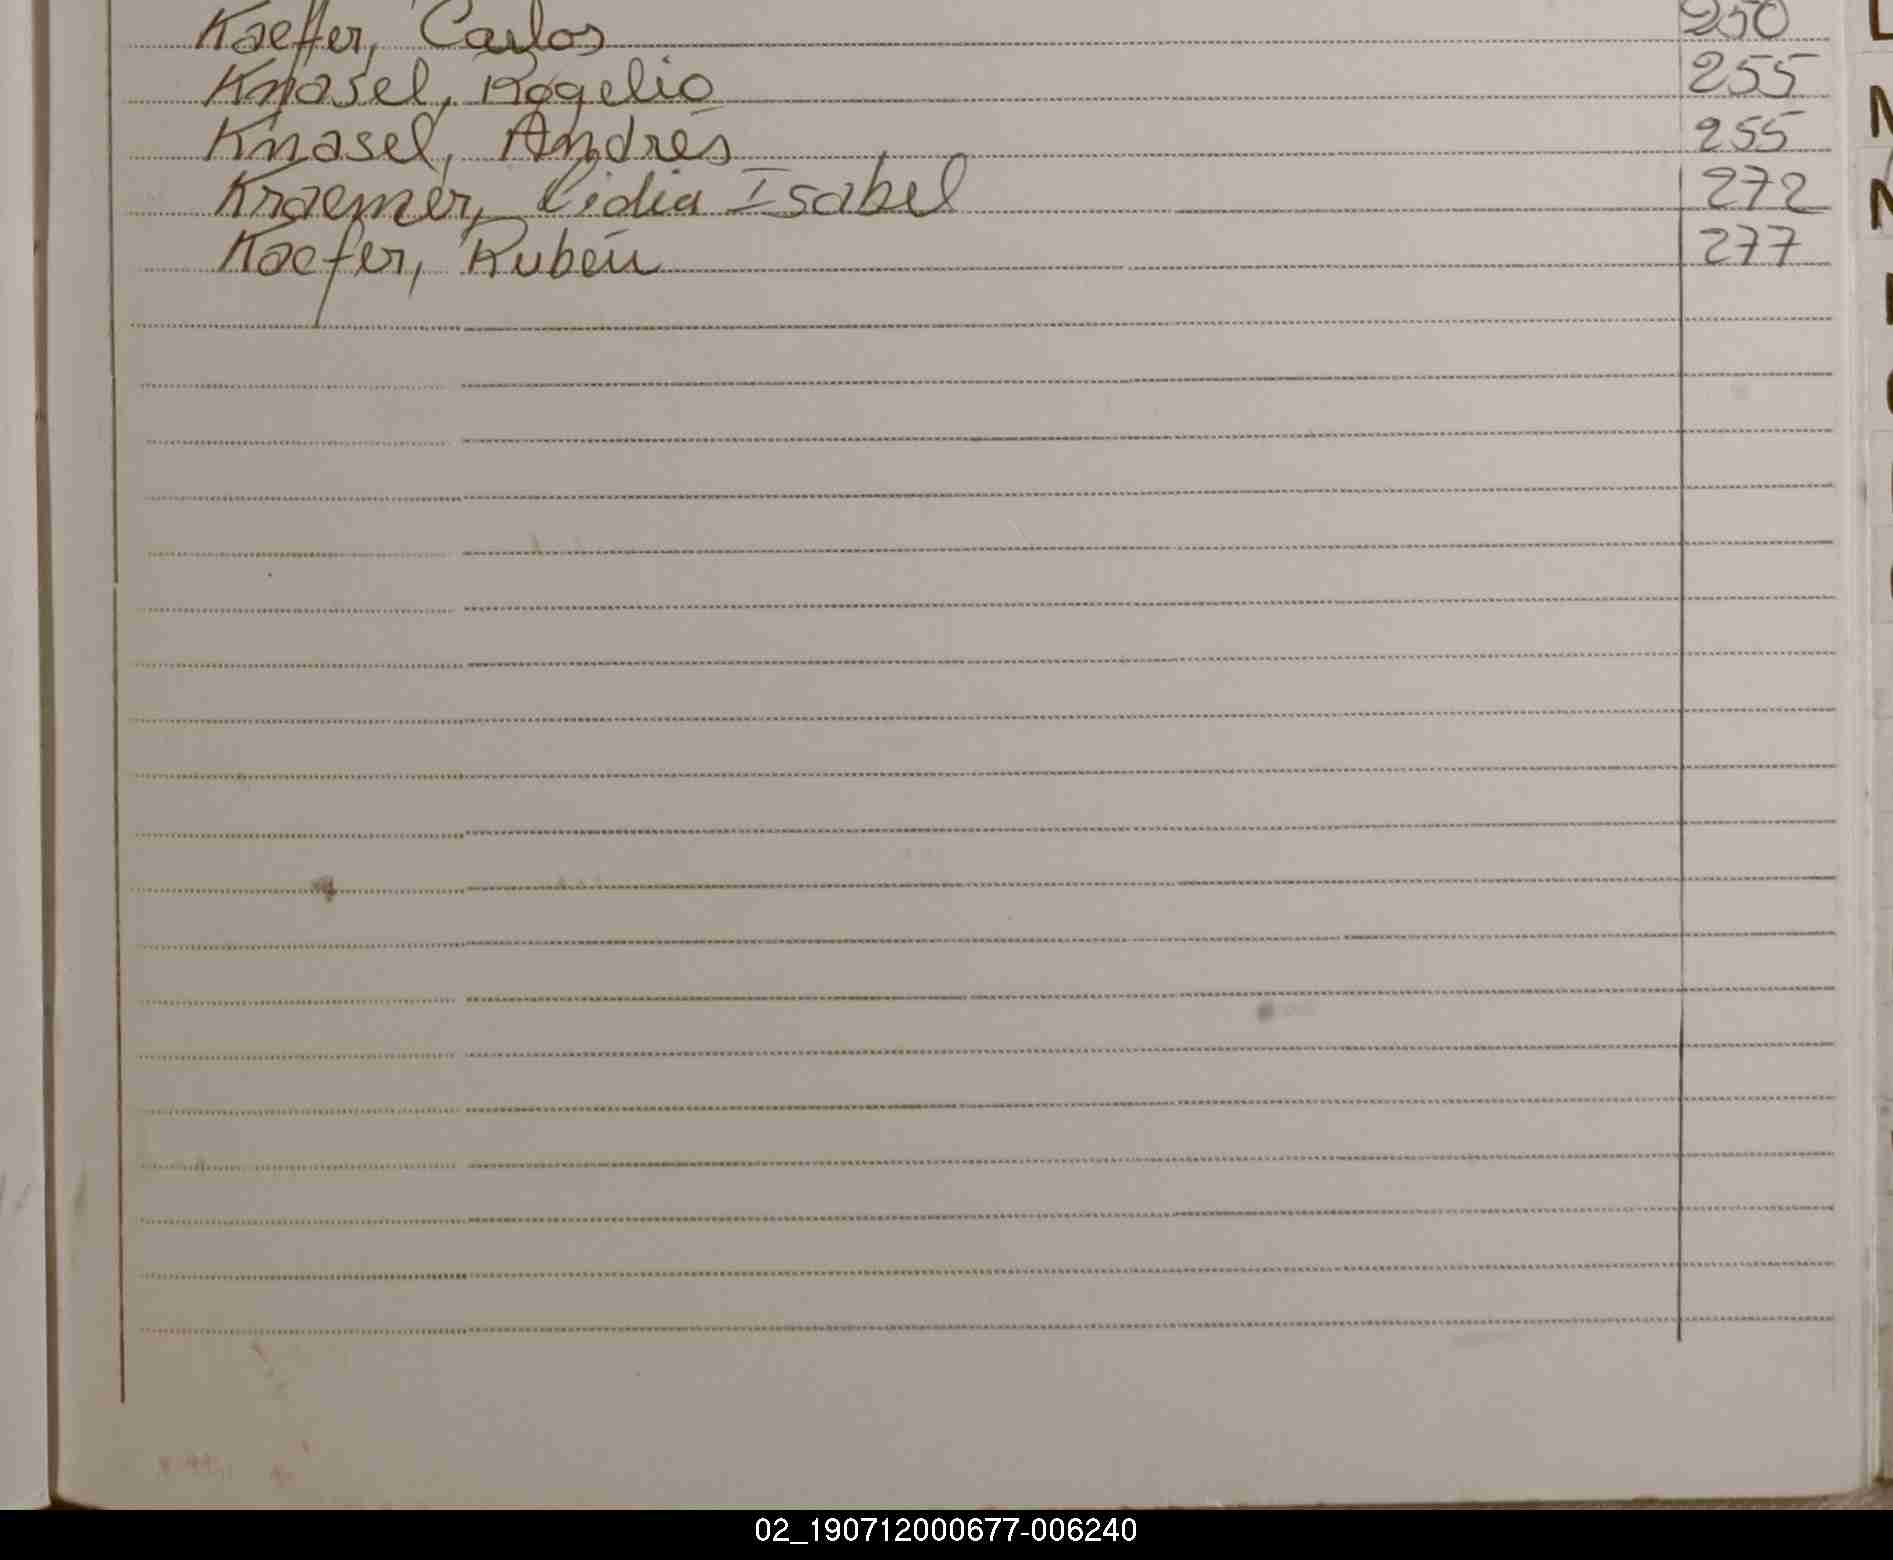 Kaeffer, Carlos 250
Knasel, Rogelio 255
Knasel, Andrés 255
Kraemer, Lidia Isabel 272
Kaefer, Rubén 277
L
02_190712000677-006240